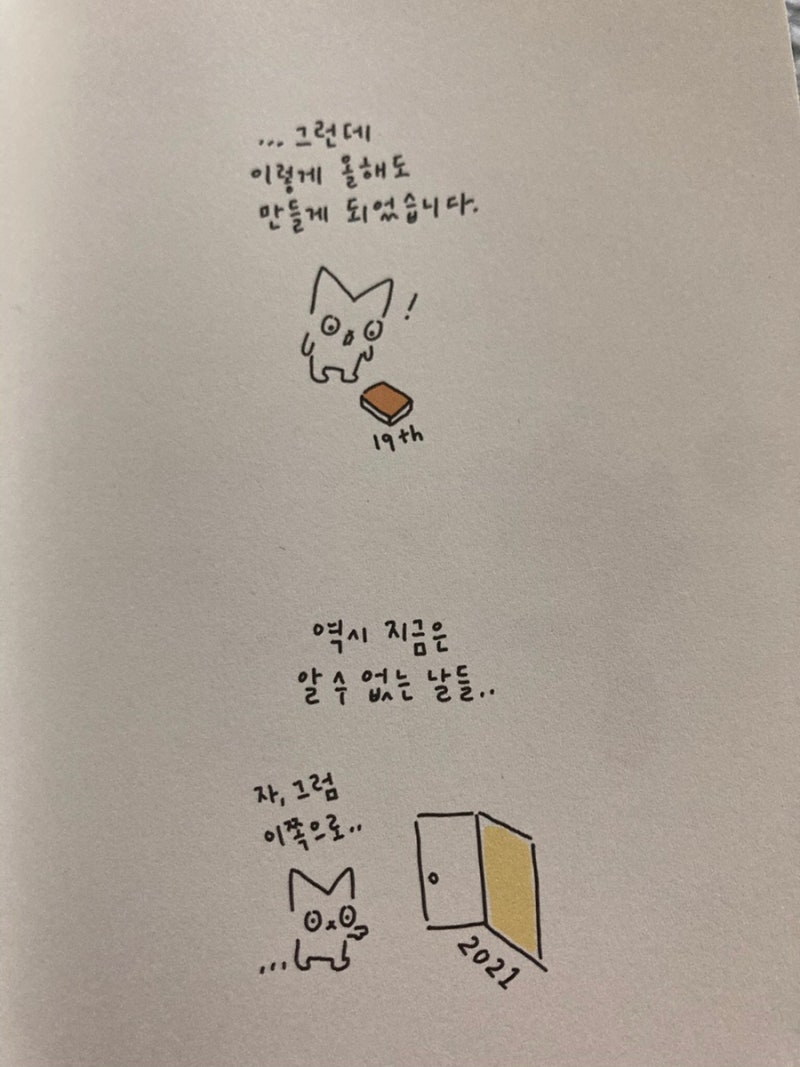 ... 그런데
이렇게 올해도
만들게 되었습니다.
!
19th
역시 지금은
알 수 없는 날들..
자, 그럼
이쪽으로..
...
2021